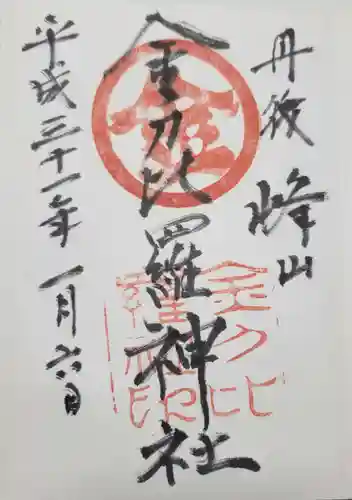 丹後 峰山
金刀比羅神社
平成三十一年 一月六日
金
金刀比羅神社印